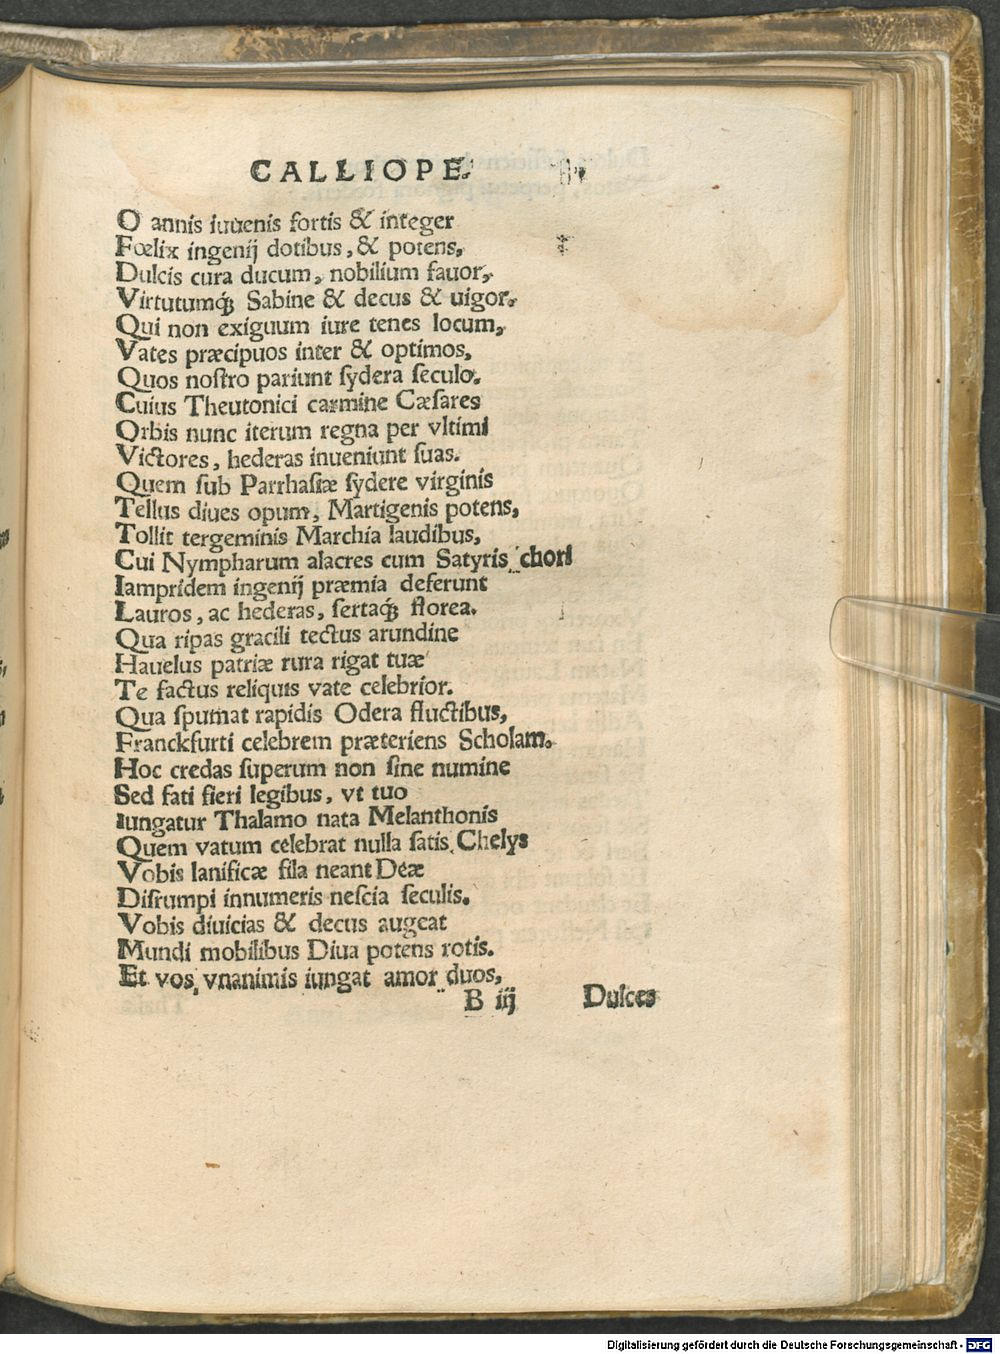 CALLIOPE.
O annis iuuenis fortis & integer
Fœlix ingenij dotibus, & potens,
Dulcis cura ducum, nobilium fauor,
Virtutumq́ꝫ Sabine & decus & uigor.
Qui non exiguum iure tenes locum,
Vates præcipuos inter & optimos,
Quos nostro pariunt sydera seculo.
Cuius Theutonici carmine Cæsares
Orbis nunc iterum regna per vltimi
Victores, hederas inueniunt suas.
Quem sub Parrhasiæ sydere virginis
Tellus diues opum, Martigenis potens,
Tollit tergeminis Marchia laudibus,
Cui Nympharum alacres cum Satyris chori
Iampridem ingenij præmia deferunt
Lauros, ac hederas, sertaq́ꝫ florea.
Qua ripas gracili tectus arundine
Hauelus patriæ rura rigat tuæ
Te factus reliquis vate celebrior.
Qua spumat rapidis Odera fluctibus,
Franckfurti celebrem præteriens Scholam.
Hoc credas superum non sine numine
Sed fati fieri legibus, vt tuo
Iungatur Thalamo nata Melanthonis
Quem vatum celebrat nulla satis Chelys
Vobis lanificæ fila neant Deæ
Disrumpi innumeris nescia seculis.
Vobis diuicias & decus augeat
Mundi mobilibus Diua potens rotis.
Et vos vnanimis iungat amor duos,
B iij Dulces
Digitalisierung gefördert durch die Deutsche Forschungsgemeinschaft - DFG